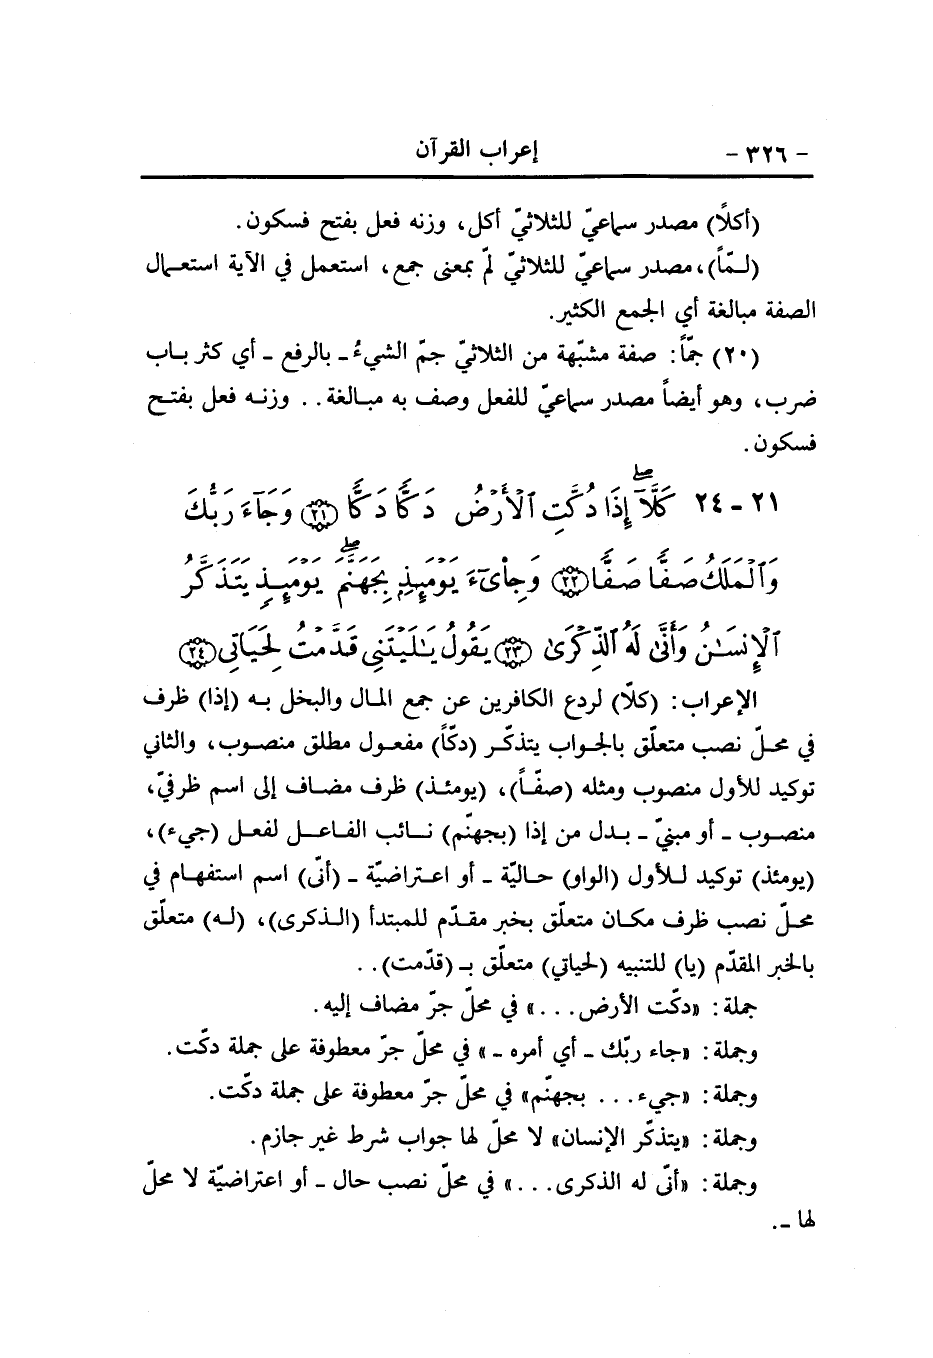 - ٣٢٦ - إعراب القرآن
(أكلاً) مصدر سماعيّ للثلاثيّ أكل، وزنه فعل بفتح فسكون.
(لـمّاً)، مصدر سماعيّ للثلاثيّ لمّ بمعنى جمع، استعمل في الآية استعمال
الصفة مبالغة أي الجمع الكثير.
(٢٠) جمّاً: صفة مشبّهة من الثلاثيّ جمّ الشيءُ ـ بالرفع ـ أي كثر باب
ضرب، وهو أيضاً مصدر سماعيّ للفعل وصف به مبالغة.. وزنه فعل بفتح
فسكون.
٢١ - ٢٤ كَلَّآ إِذَا دُكَّتِ ٱلْأَرْضُ دَكًّا دَكًّا ﴿٢١﴾ وَجَآءَ رَبُّكَ
وَٱلْمَلَكُ صَفًّا صَفًّا ﴿٢٢﴾ وَجِاْىٓءَ يَوْمَئِذِۭ بِجَهَنَّمَ يَوْمَئِذٍ يَتَذَكَّرُ
ٱلْإِنسَـٰنُ وَأَنَّىٰ لَهُ ٱلذِّكْرَىٰ ﴿٢٣﴾ يَقُولُ يَـٰلَيْتَنِى قَدَّمْتُ لِحَيَاتِى ﴿٢٤﴾
الإعراب: (كلّا) لردع الكافرين عن جمع المال والبخل به (إذا) ظرف
في محلّ نصب متعلّق بالجواب يتذكّر (دكّاً) مفعول مطلق منصوب، والثاني
توكيد للأول منصوب ومثله (صفّاً)، (يومئذ) ظرف مضاف إلى اسم ظرفيّ،
منصوب ـ أو مبنيّ ـ بدل من إذا (بجهنّم) نائب الفاعل لفعل (جيء)،
(يومئذ) توكيد للأول (الواو) حاليّة ـ أو اعتراضيّة ـ (أنّى) اسم استفهام في
محلّ نصب ظرف مكان متعلّق بخبر مقدّم للمبتدأ (الذكرى)، (له) متعلّق
بالخبر المقدّم (يا) للتنبيه (لحياتي) متعلّق بـ (قدّمت)..
جملة: «دكّت الأرض...» في محلّ جرّ مضاف إليه.
وجملة: «جاء ربّك ـ أي أمره ـ» في محلّ جرّ معطوفة على جملة دكّت.
وجملة: «جيء... بجهنّم» في محلّ جرّ معطوفة على جملة دكّت.
وجملة: «يتذكّر الإنسان» لا محلّ لها جواب شرط غير جازم.
وجملة: «أنّى له الذكرى...» في محلّ نصب حال ـ أو اعتراضيّة لا محلّ
لها ـ.